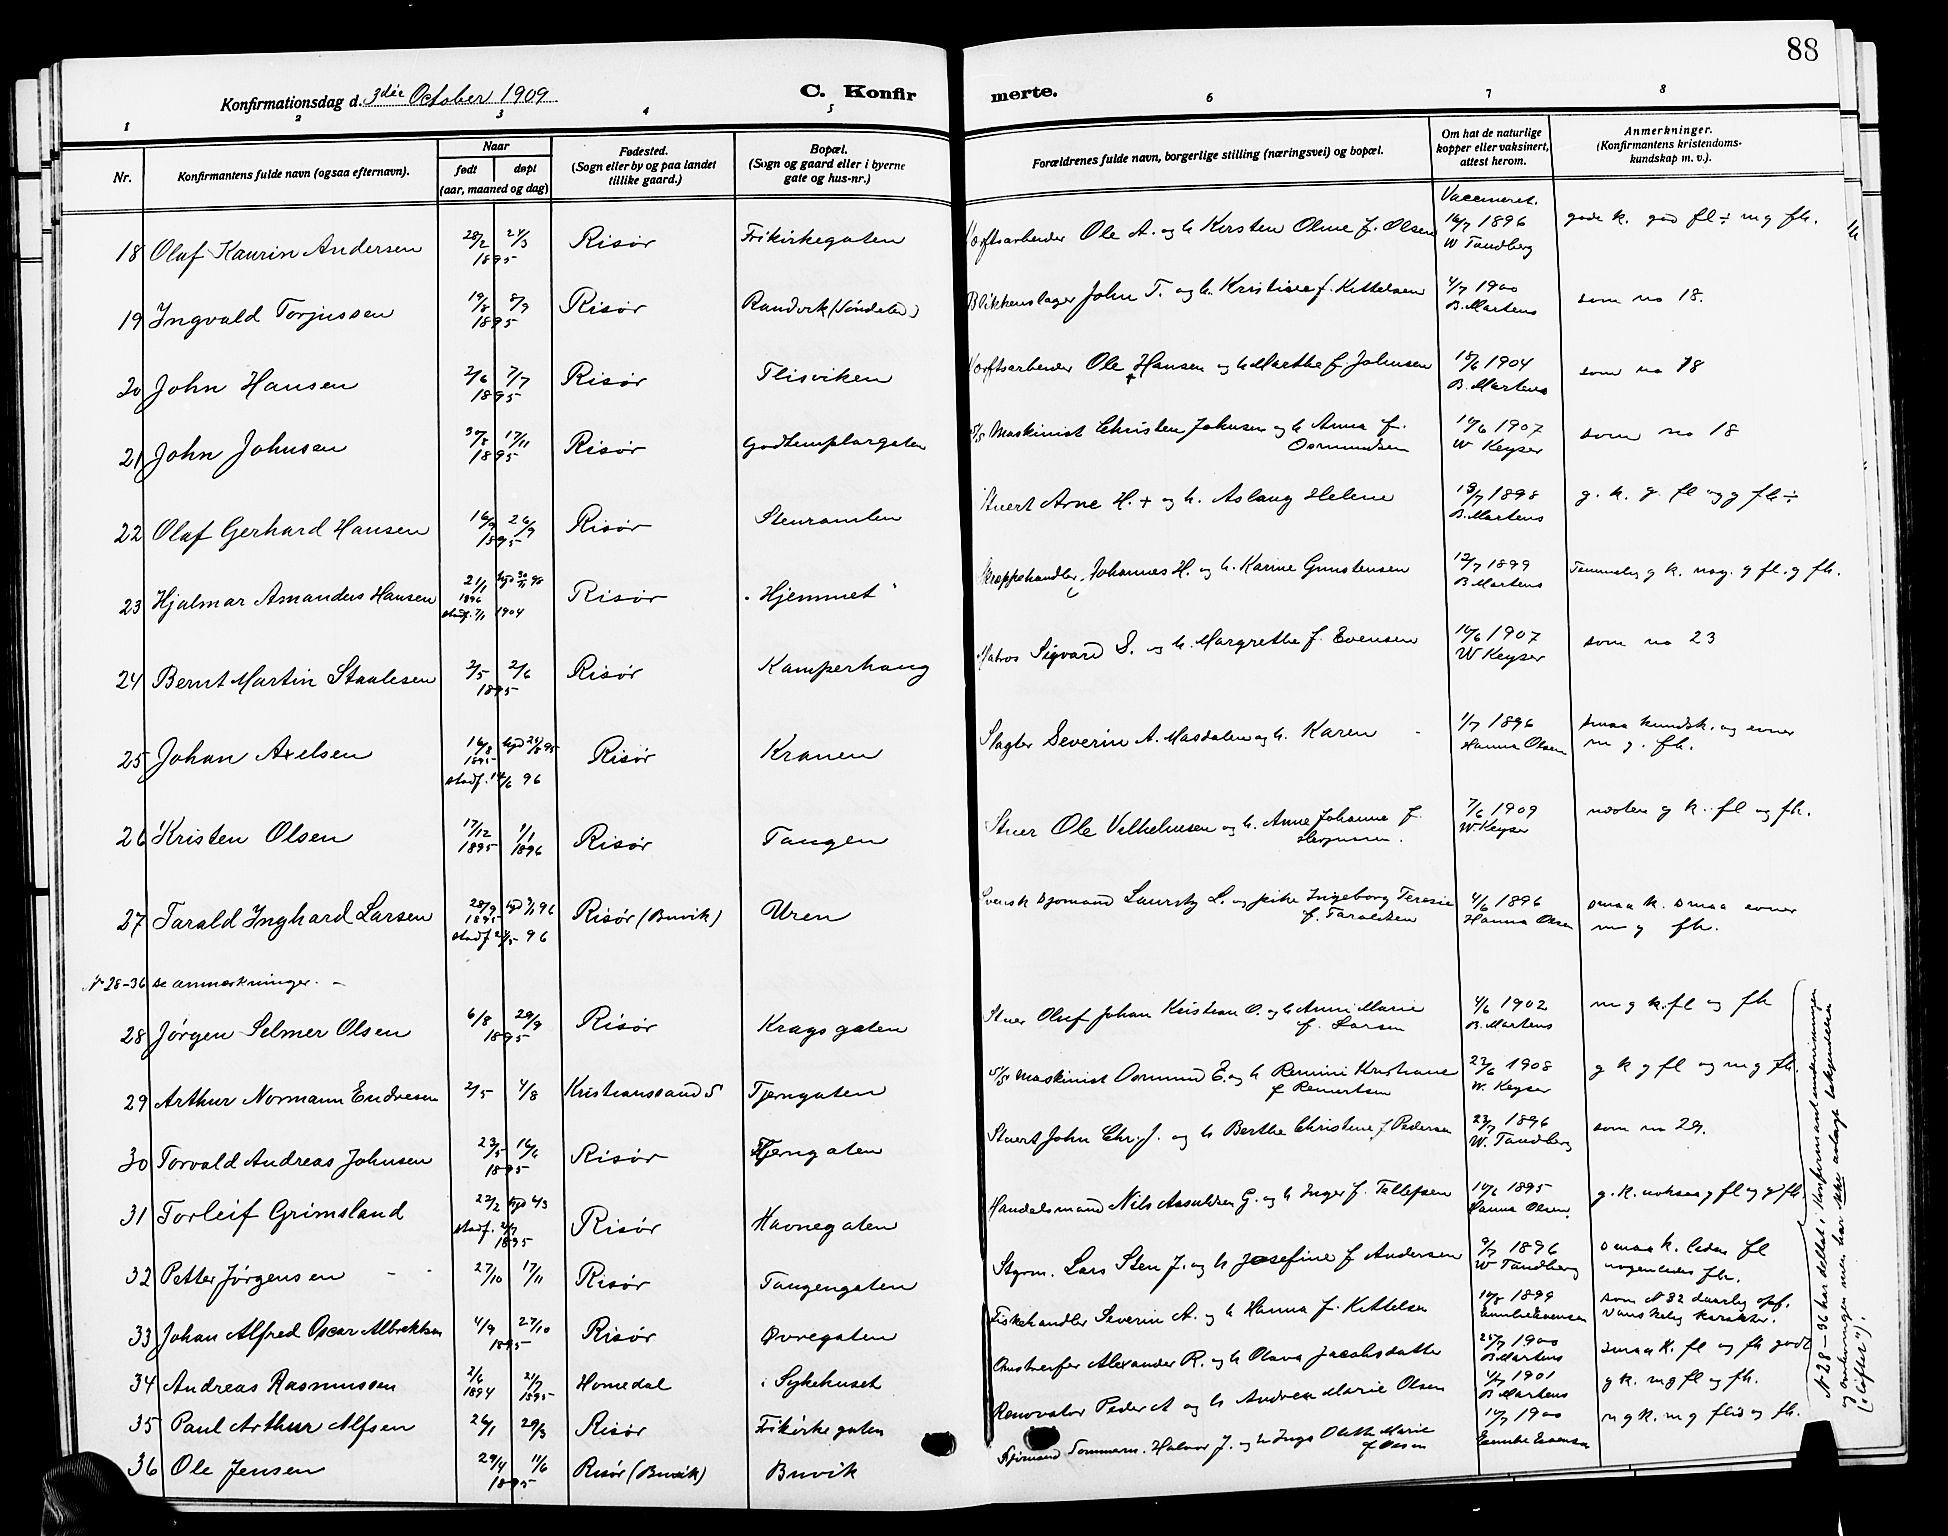 88
Konfirmationsdag d. 3die October 1909
C. Konfirmerte.
1 2 3 4 5 6 7 8
Nr.
Konfirmantens fulde navn (ogsaa efternavn).
Naar
født døpt
(aar, maaned og dag)
Fødested.
(Sogn eller by og paa landet
tillike gaard.)
Bopæl.
(Sogn og gaard eller i byerne
gate og hus-nr.)
Forældrenes fulde navn, borgerlige stilling (næringsvei) og bopæl.
Om hat de naturlige
kopper eller vaksinert,
attest herom.
Anmerkninger.
(Konfirmantens kristendoms-
kundskap m. v.).
Vaccineret.
18 Olaf Kaurin Andersen 28/2 24/3 1895 Risør Frikirkegaten Ole A. og h. Kirsten Oline f. Olsen 16/7 1896 W Tandberg gode k. god fl ÷ m g fh.
19 Ingvald Torjussen 19/8 8/9 1895 Risør Randvik (Søndeled) Blikkenslager John T. og h. Kristine f. Kittelsen 4/7 1900 B. Martens som no 18.
20 John Hansen 2/6 7/7 1895 Risør Flisviken Ole + Hansen og h Marthe f. Johnsen 18/6 1904 B. Martens som no 18
21 John Johnsen 30/8 17/11 1895 Risør Godtemplargaten D/S Maskinist Christen Johnsen og h Anna f. Osmundsen 10/6 1907 W Keyser som no 18
22 Olaf Gerhard Hansen 16/9 26/9 1895 Risør Stenramlen Stuert Arne H. + og h. Aslaug Helene 13/7 1898 B. Martens g. k. g. fl og g fh ÷
23 Hjalmar Amandus Hansen 21/1 1896 stadf. 7/1 1904 Risør "Hjemmet" Johannes H. og h. Karine Gunstensen 12/7 1899 B Martens Temmelig g k. nog. g fl. g fh.
24 Bernt Martin Staalesen 2/5 2/6 1895 Risør Kamperhaug Matros Sigvard S. og h. Margrethe f. Evensen 10/6 1907 W Keyser som no 23
25 Johan Axelsen 16/8 1895 stadf. 14/6 96 Risør Kranen Slagter Severin A. Masdalen og h. Karen 1/7 1896 Hanna Olsen smaa kundsk. og evner m g. fh.
26 Kristen Olsen 17/12 1895 1/1 1896 Risør Tangen Stuer Ole Vilhelmsen og h. Anne Johanne f. 7/6 1909 W. Keyser næsten g k. fl og fh.
27 Tarald Inghard Larsen 28/9 1895 stadf 96 Risør (Buvik) Uren Svensk sjømand Lauritz L. og pike Ingeborg Teresie f. Taraldsen 4/6 1896 Hanna Olsen smaa k. smaa evner m g fh.
N 28-36 se anmærkninger. –
28 Jørgen Selmer Olsen 6/8 29/9 1895 Risør Kragsgaten Stuer Oluf Johan Kristian O. og h Anne Marie f. Larsen 4/6 1902 B. Martens m g k. fl og fh
29 Arthur Normann Endresen 2/5 4/8 Kristianssand S Tjerngaten D/S Maskinist Osmund E. og h Remine Kristiane f Reinertsen 23/6 1908 W. Keyser g k g fl og m g fh.
30 Torvald Andreas Johnsen 23/5 16/6 1895 Risør Tjerngaten Stuert John Chr. J. og h Berthe Christine f Pedersen 23/7 1896 W. Tandberg som no 29.
31 Torleif Grimsland 22/2 stadf. 1895 Risør Havnegaten Handelsmand Nils Assuldsen G. og h Inger f. Tollefsen 10/6 1895 Hanna Olsen. g. k. noksaa g fl og g fh.
32 Petter Jørgensen 27/10 17/11 Risør Tangengaten Styrm. Lars Sten J. og h Josefine f Andersen 9/7 1896 W Tandberg smaa k. liden fl nogenledes fh.
33 Johan Alfred Oscar Albrektsen 4/9 27/10 1895 Risør Øvregaten Fiskehandler Severin A. og h Hanna f. Kittelsen 1899 Emilie Evensen som N 32 daarlig opf. vanskelig karakter.
34 Andreas Rasmussen 2/6 1894 2/7 1895 Homedal i Sykehuset Alexander R. og h Olava Jacobsdatter 25/7 1900 B. Martens smaa k. fl og fh godt
35 Paul Arthur Alfsen 26/1 29/3 Risør Frikirkegaten Renovatør Peder A og h Andrea Marie Olsen 4/7 1901 B Martens g k. m g fl og fh.
36 Ole Jensen 29/4 11/6 1895 Risør (Buvik) Buvik Sjømand Tommerm. Halvor J. og h Inga Olette Marie f Olsen 10/7 1900 Emilie Evensen m g k. m g flid og fh.
N 28–36 har deltat i Konfirmantundervisningen
og overhøringen men har ikke avlagt bekjendelsen
("løftet").